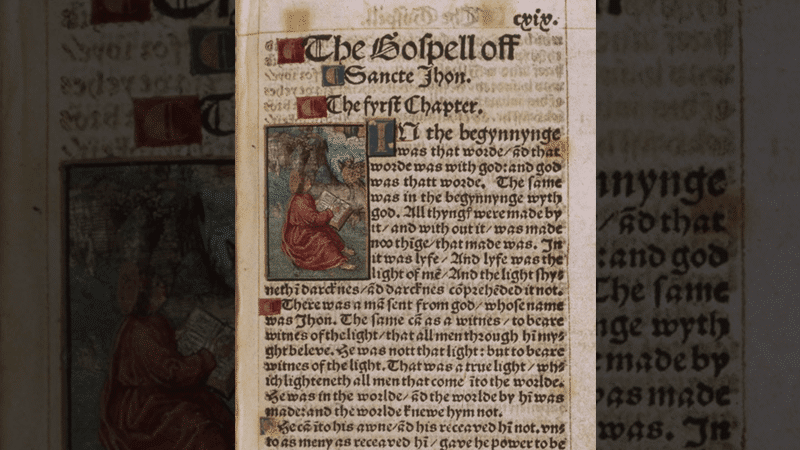 cxix.
The Gospell off
Sancte Jhon.
The fyrst Chapter.
IN the begynnynge
was that worde/ ād that
worde was with god: and god
was thatt worde. The same
was in the begynnynge wyth
god. All thyngs were made by
it/ and with out it/ was made
noo thīge/ that made was. In
it was lyfe/ And lyfe was the
light of mē/ And the light shys
neth ī darcknes/ ād darcknes cōprehēded it not.
There was a mā sent from god/ whose name
was Jhon. The same cā as a witnes/ to beare
witnes of the light/ that all men through hī mys
ght beleve. He was nott that light: but to beare
witnes of the light. That was a true light/ whs
ich lighteneth all men that come īto the worlde.
He was in the worlde/ ād the worlde by hī was
made: and the worlde knewe hym not.
He cā īto his awne/ ād his receaved hī not. vns
to as meny as receaved hī/ gave he power to be